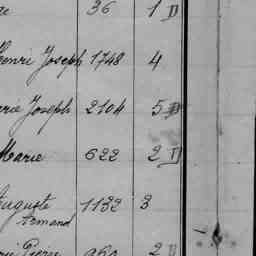 36 1 D
Henri Joseph 1748 4
Joseph 2104 5 D
Marie 622 2 D
Auguste 1132 3
Armand
2 D